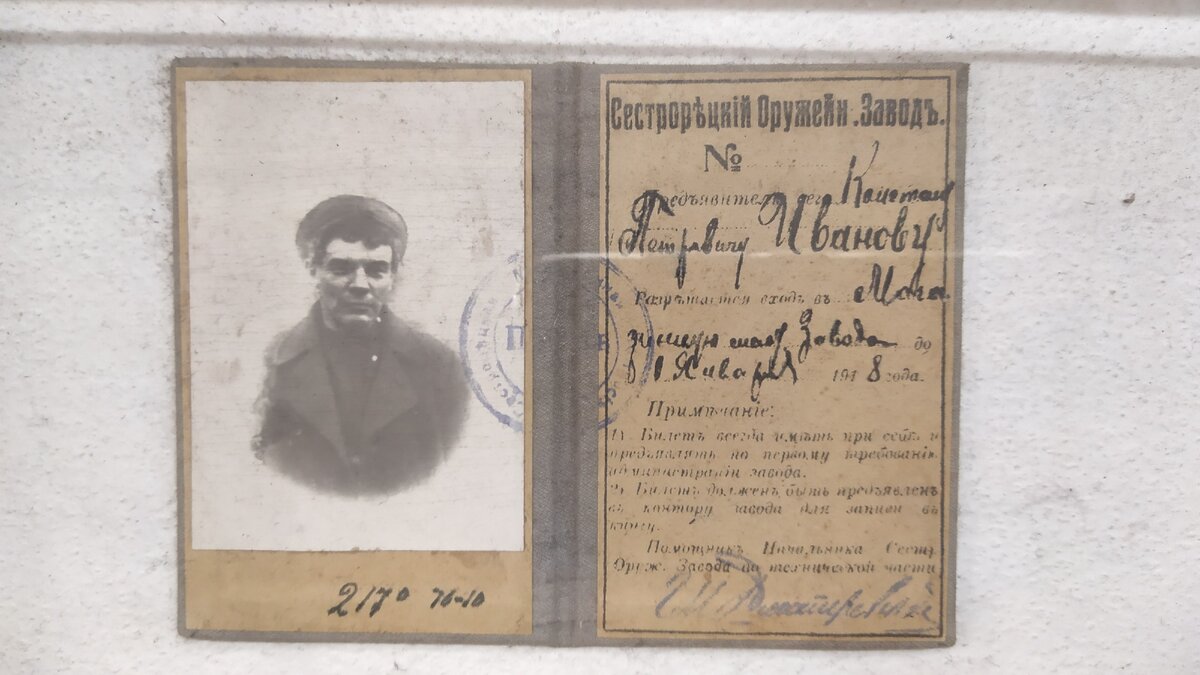 Сестрорѣцкій Оружейн. Заводъ.
№
Предъявитель сего
Петровичу Иванову
Разрѣшается входъ въ Мага
Завода до
Января 1918 года.
Примѣчаніе:
1) Билетъ всегда имѣть при себѣ и
предъявлять по первому требованію
администраціи завода.
2) Билетъ долженъ быть предъявленъ
въ контору завода для записи въ
книгу.
Помощникъ Начальника Сестр.
Оруж. Завода по технической части
217⁰ 76-10